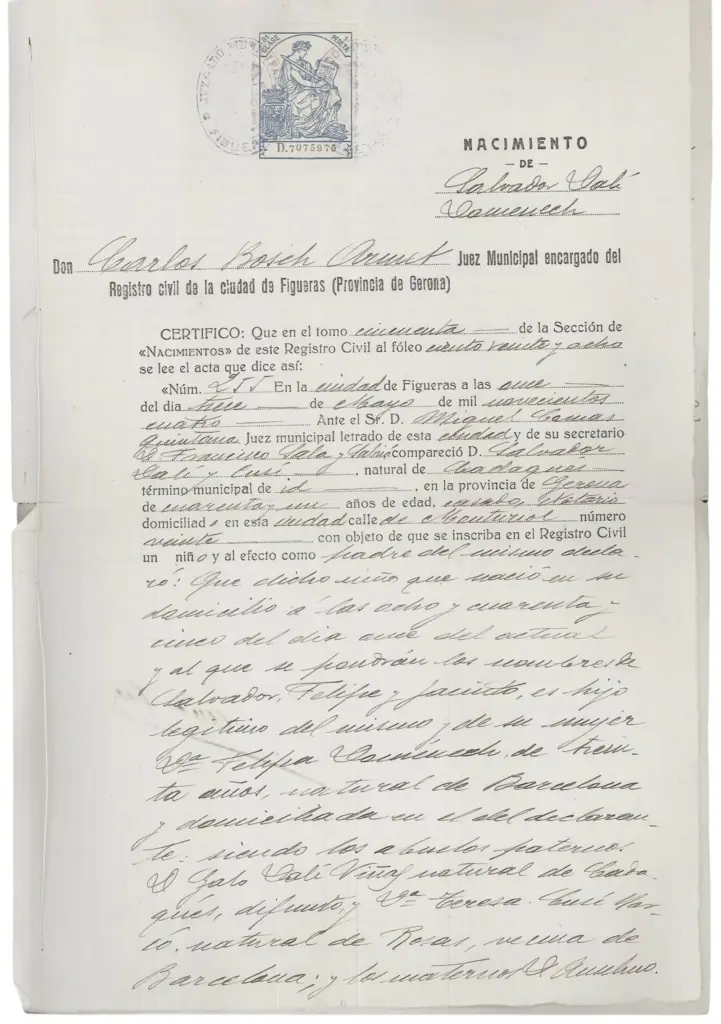 JUZGADO MUN
FIGUE
CLASE
PESETA
D.7075976
NACIMIENTO
— DE —
Salvador Dalí
Domenech
Don Carlos Bosch Armet Juez Municipal encargado del
Registro civil de la ciudad de Figueras (Provincia de Gerona)
CERTIFICO: Que en el tomo cincuenta — de la Sección de
«NACIMIENTOS» de este Registro Civil al fóleo ciento veinte y ocho
se lee el acta que dice así:
«Núm. 255 En la ciudad de Figueras a las once —
del día trece — de Mayo de mil novecientos
cuatro — Ante el Sr. D. Miguel Comas
Quintana Juez municipal letrado de esta ciudad y de su secretario
D. Francisco Sala y Sabria compareció D. Salvador
Dalí y Cusí —, natural de Cadaqués —
término municipal de id —, en la provincia de Gerona
de cuarenta y un años de edad, casado Notario
domiciliado en esta ciudad calle de Monturiol número
veinte — con objeto de que se inscriba en el Registro Civil
un niño y al efecto como padre del mismo decla-
ró: Que dicho niño que nació en su
domicilio á las ocho y cuarenta y
cinco del dia once del actual
y al que se pondrán los nombres de
Salvador, Felipe y Jacinto, es hijo
legitimo del mismo y de su mujer
Dª Felipa Domenech, de trein-
ta años, natural de Barcelona
y domiciliada en el del declaran-
te: siendo los abuelos paternos
D Galo Dalí Viñas natural de Cada-
qués, difunto, y Dª Teresa Cusí Mar-
có, natural de Rosas, vecina de
Barcelona; y los maternos D Anselmo.